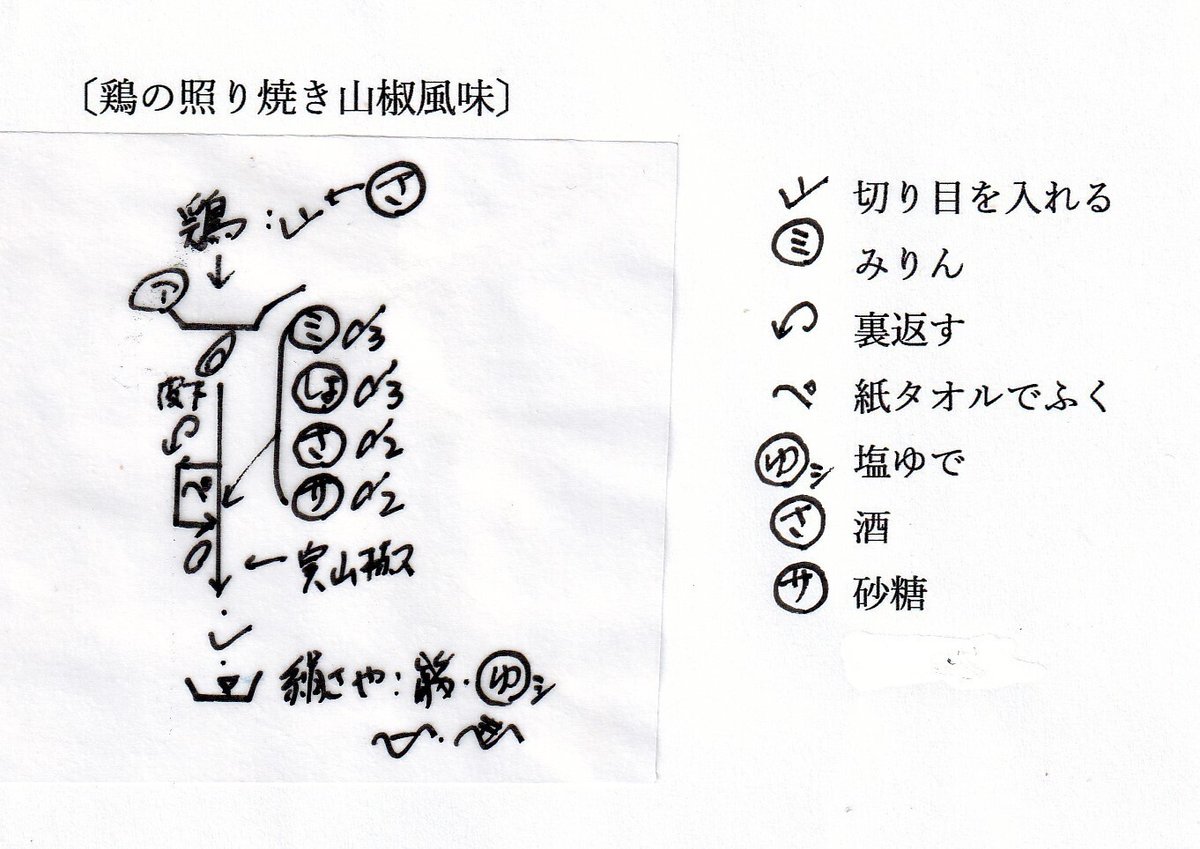 〔鶏の照り焼き山椒風味〕
鶏:山←さ
ア
ミ 0'3
皮下
しょ 0'3
さ 0'2
ペ
サ 0'2
←実山椒
絹さや:筋・ゆシ
切り目を入れる
ミ みりん
裏返す
ペ 紙タオルでふく
ゆシ 塩ゆで
さ 酒
サ 砂糖